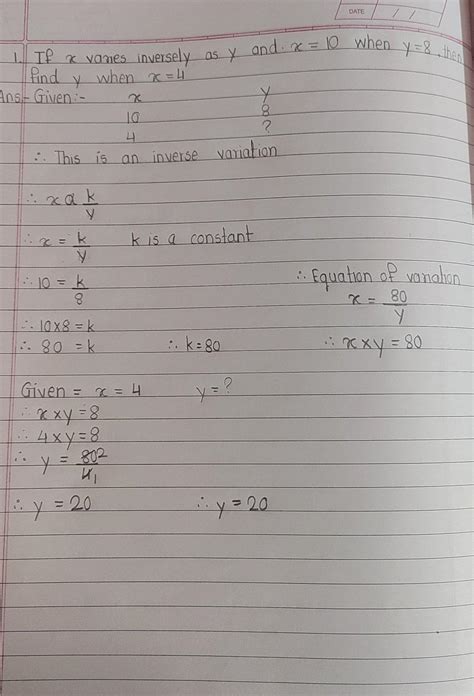 DATE / /
1. If x varies inversely as y and x = 10 when y=8, then
find y when x=4
Ans- Given:- x y
10 8
4 ?
∴ This is an inverse variation
∴ x α k/y
∴ x = k/y k is a constant
∴ 10 = k/8 ∴ Equation of variation
x = 80/y
∴ 10x8 = k
∴ 80 = k ∴ k=80 ∴ x x y = 80
Given = x = 4 y=?
∴ x x y = 8
∴ 4 x y = 8
∴ y = 802/41
∴ y = 20 ∴ y = 20